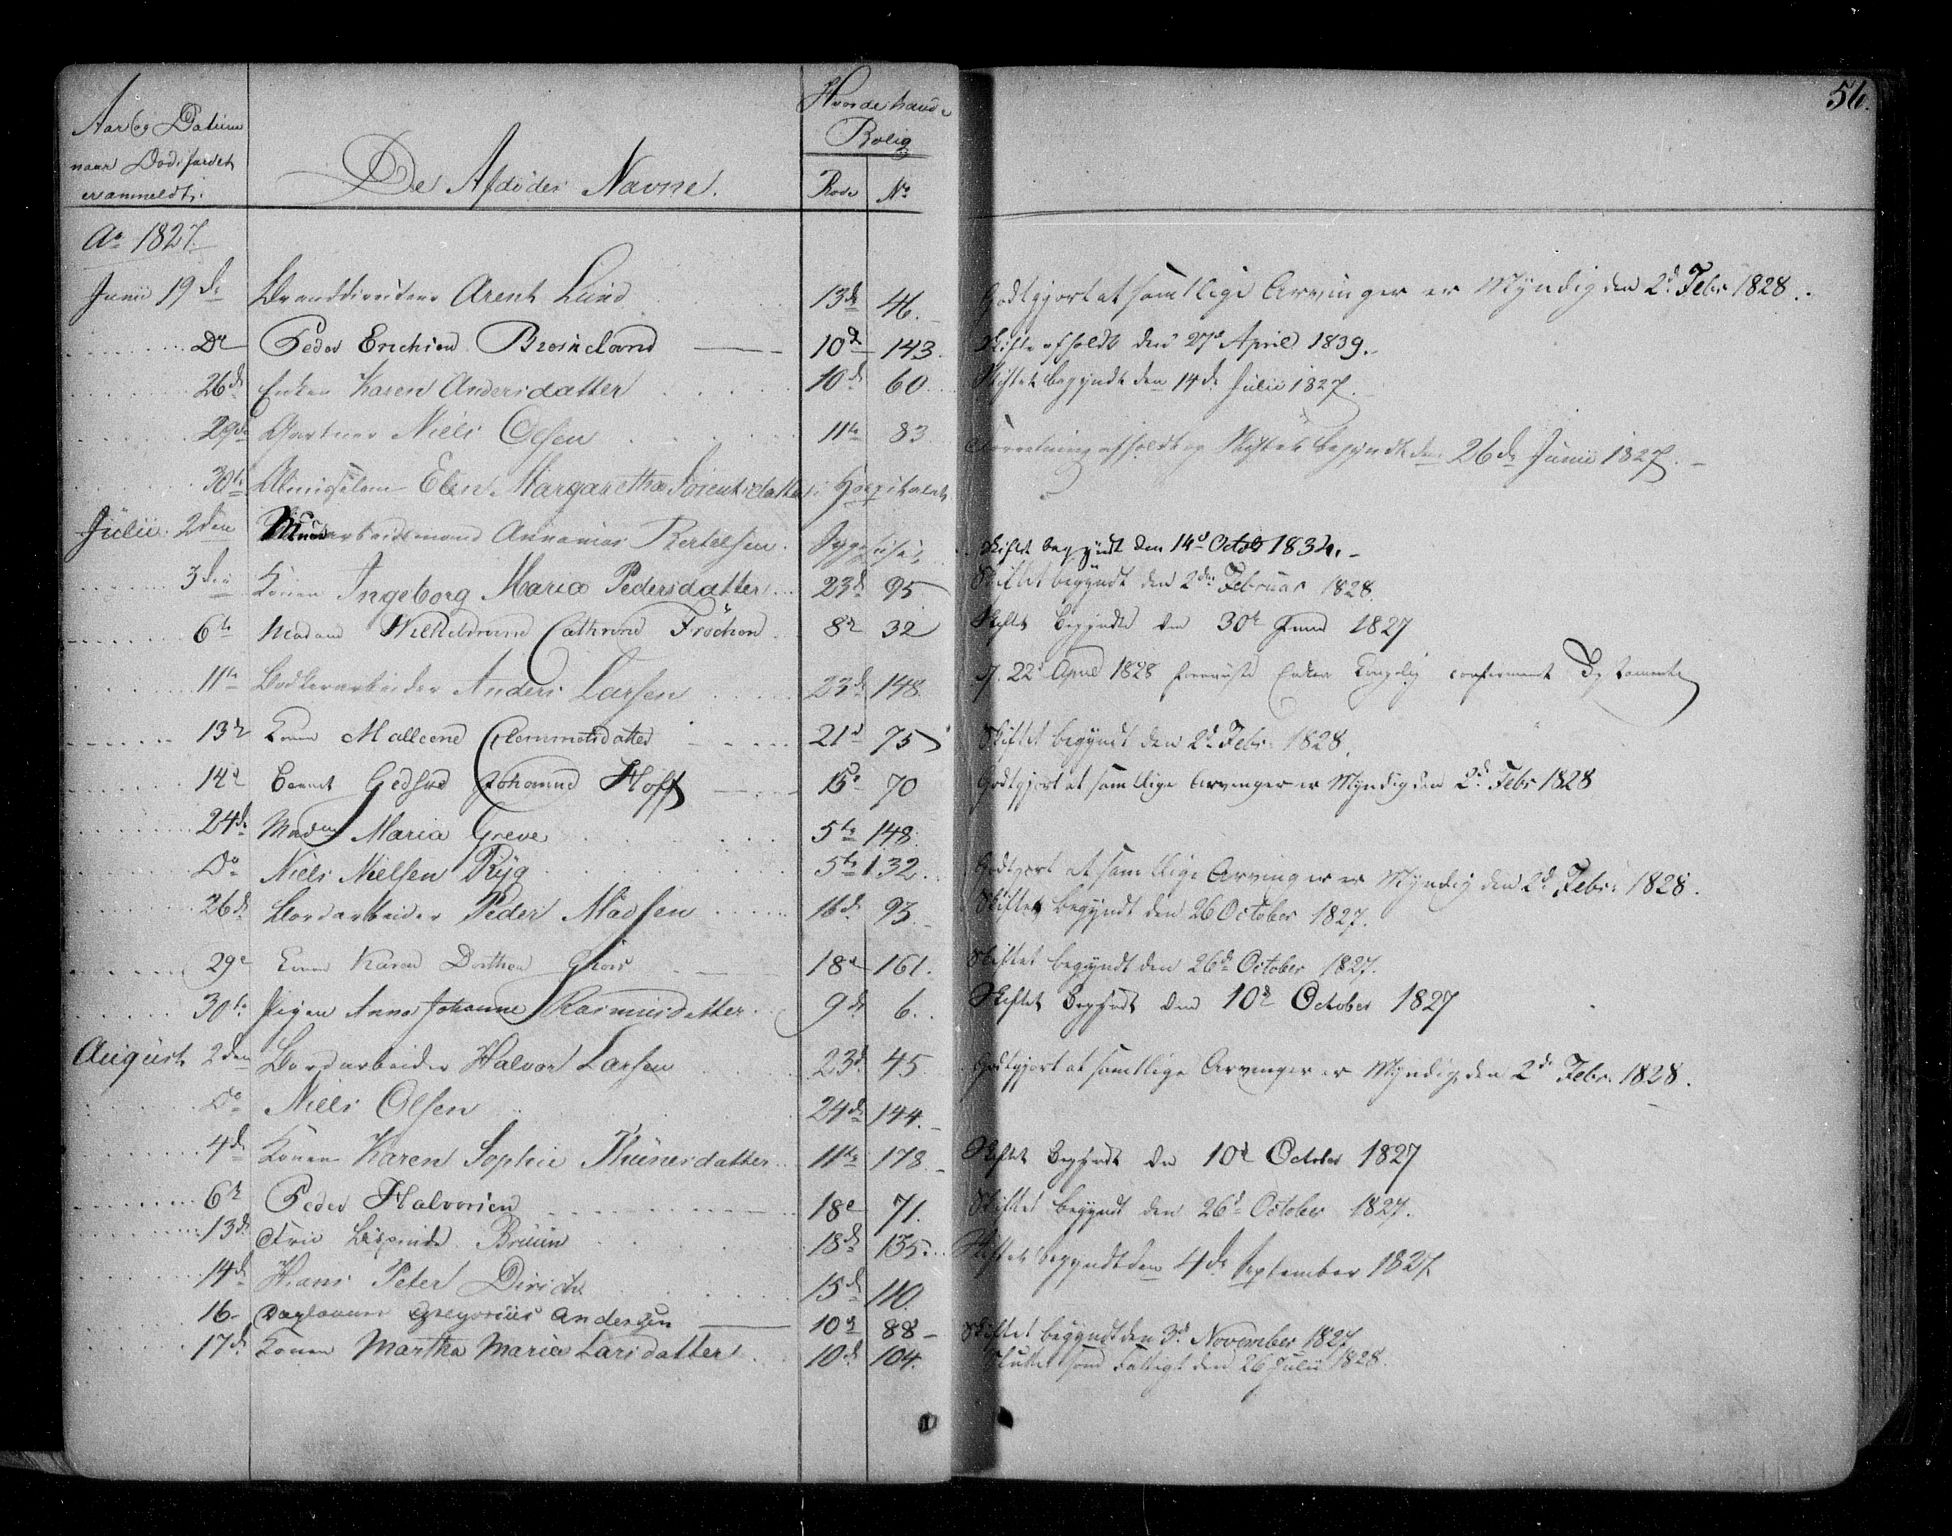 56.
Aar og Datum
naar Dødsfaldet
er anmeldt.
De Afdødes Navne.
Hvor de havde
Bolig
Rode No
Ao 1827.
Junii 19de Branddirecteur Arent Lund 13de 46. Godtgjort at samtlige Arvinger er Myndig den 2d Febr 1828.
Do Peder Erichsen 10d 143. Skifte afholdt den 27d April 1839.
26de Enken Karen Andersdatter 10de 60 Skiftet begyndt den 14de Julii 1827.
29de Gartner Niels Olsen 11te 83. afholdt og Skiftet begyndt den 26de Junii 1827.
30te Almisselem Elen Margaretha Sørensdatter i Hospitalet
Julii 2den arbeidsmand Annanias Bertelsen. Sygehuset Skiftet begyndt den 14d Octob 1834.
3den Konen Ingeborg Maria Pedersdatter 23de 95 Skiftet begyndt den 2den Februar 1828.
6te Madam Cathrine 8de 32 Skiftet begyndt den 30te Juni 1827
11te Bødkerarbeider Anders Larsen 23de 148. 22d April 1828 Enken Kongelig confirmeret
13de Konen Mallene Clemmetsdatter 21d 75 Skiftet begyndt den 2d Febr. 1828.
14de Johanne Hoff 15de 70 Godtgjort at samtlige Arvinger er Myndig den 2d Febr 1828
24de Madm Maria Greve 5te 148.
Do Niels Nielsen Ryg 5te 132. Godtgjort at samtlige Arvinger er Myndig den 2d Febr: 1828.
26de Bordarbeider Peder Madsen 16de 93. Skiftet begyndt den 26 October 1827.
29e Konen Karen Dorthea 18e 161. Skiftet begyndt den 26de October 1827.
30te Pigen Anna Johanne Rasmusdatter 9de 6. Skiftet begyndt den 10de October 1827
August 2den Bordarbeider Halvor Larsen 23d 45. Godtgjort at samtlige Arvinger er Myndig den 2de Febr. 1828.
Do Niels Olsen 24de 144.
4de Konen Karen Sophie Thunesdatter 11te 178. Skiftet begyndt den 10de October 1827
6te Peder Halvorsen 18e 71. Skiftet begyndt den 26d October 1827.
13de Bruun 18de 135. Skiftet begyndt den 4de September 1827
14de Hans Peter Dirichs 15de 110.
16 Gregorius Andersen 10de 88 Skiftet begyndt den 3d November 1827.
17de Konen Martha Maria Larsdatter 10de 104. Sluttet som Fattigt den 26 Julii 1828.